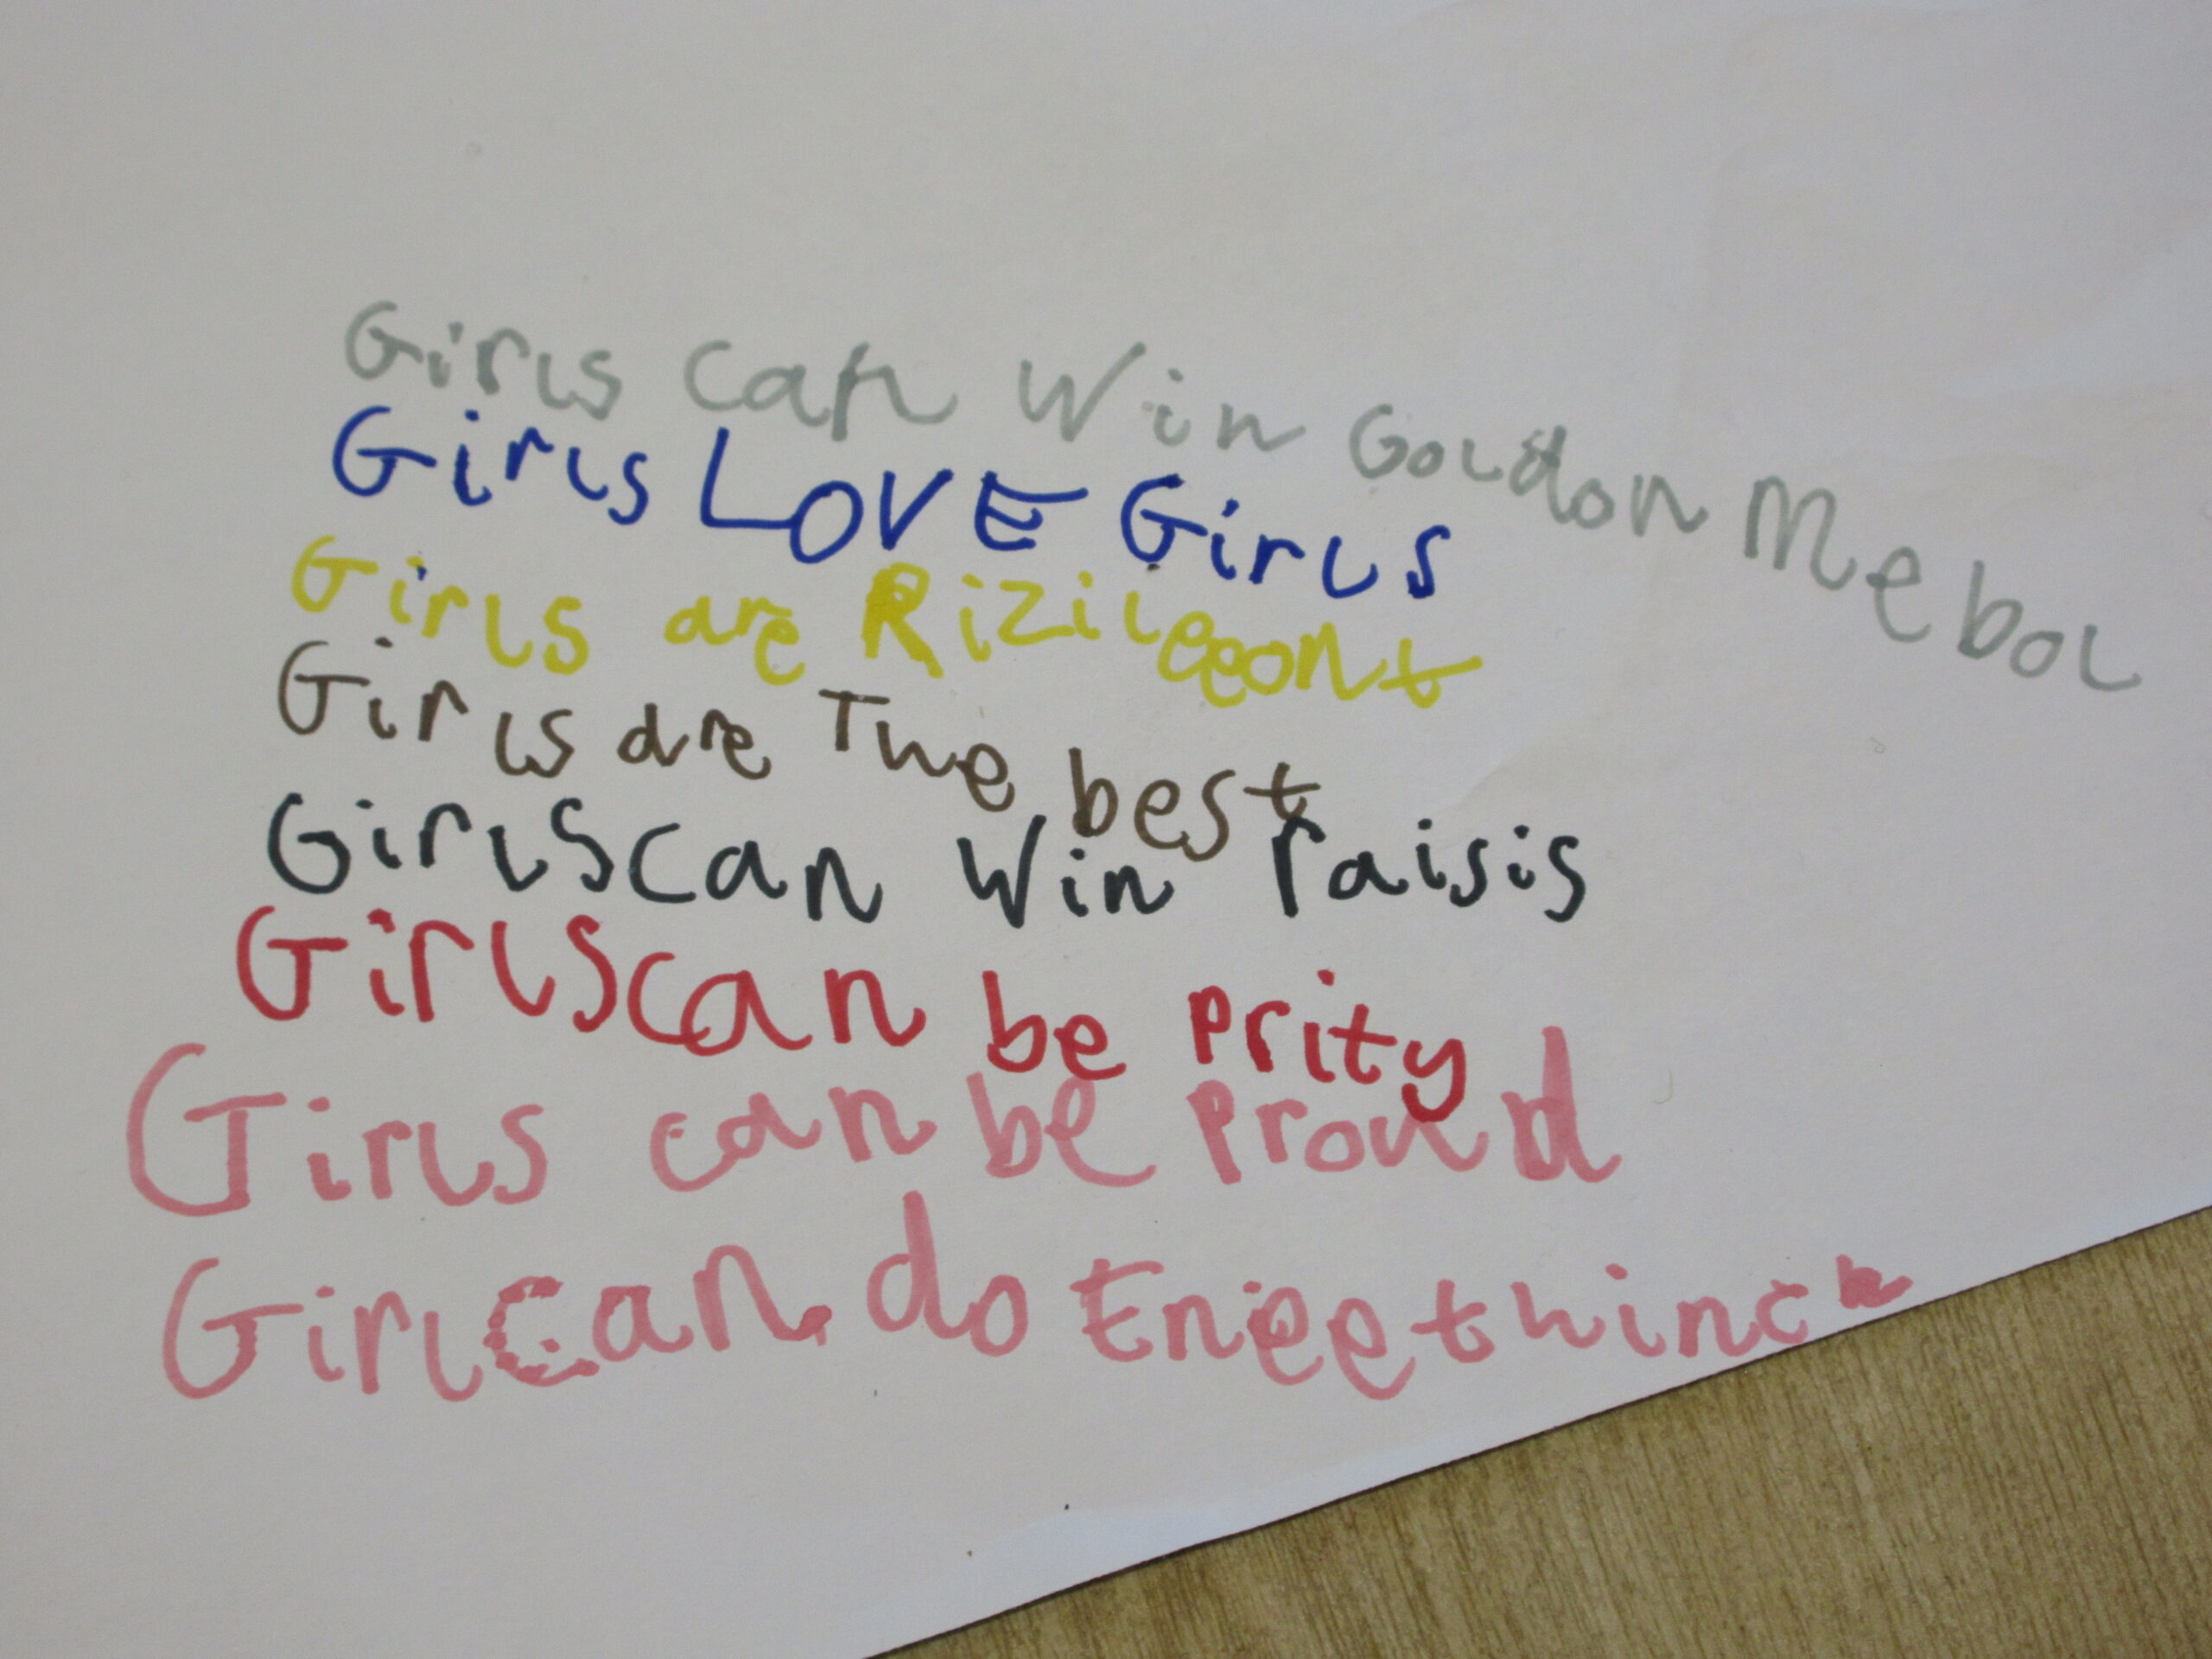 Girls can win Goldon Mebol
Girls LOVE Girls
Girls are Rizileeont
Girls are The best
Girls can win raisis
Girls can be Prity
Girls can be Proud
Girl can do Eneethinck